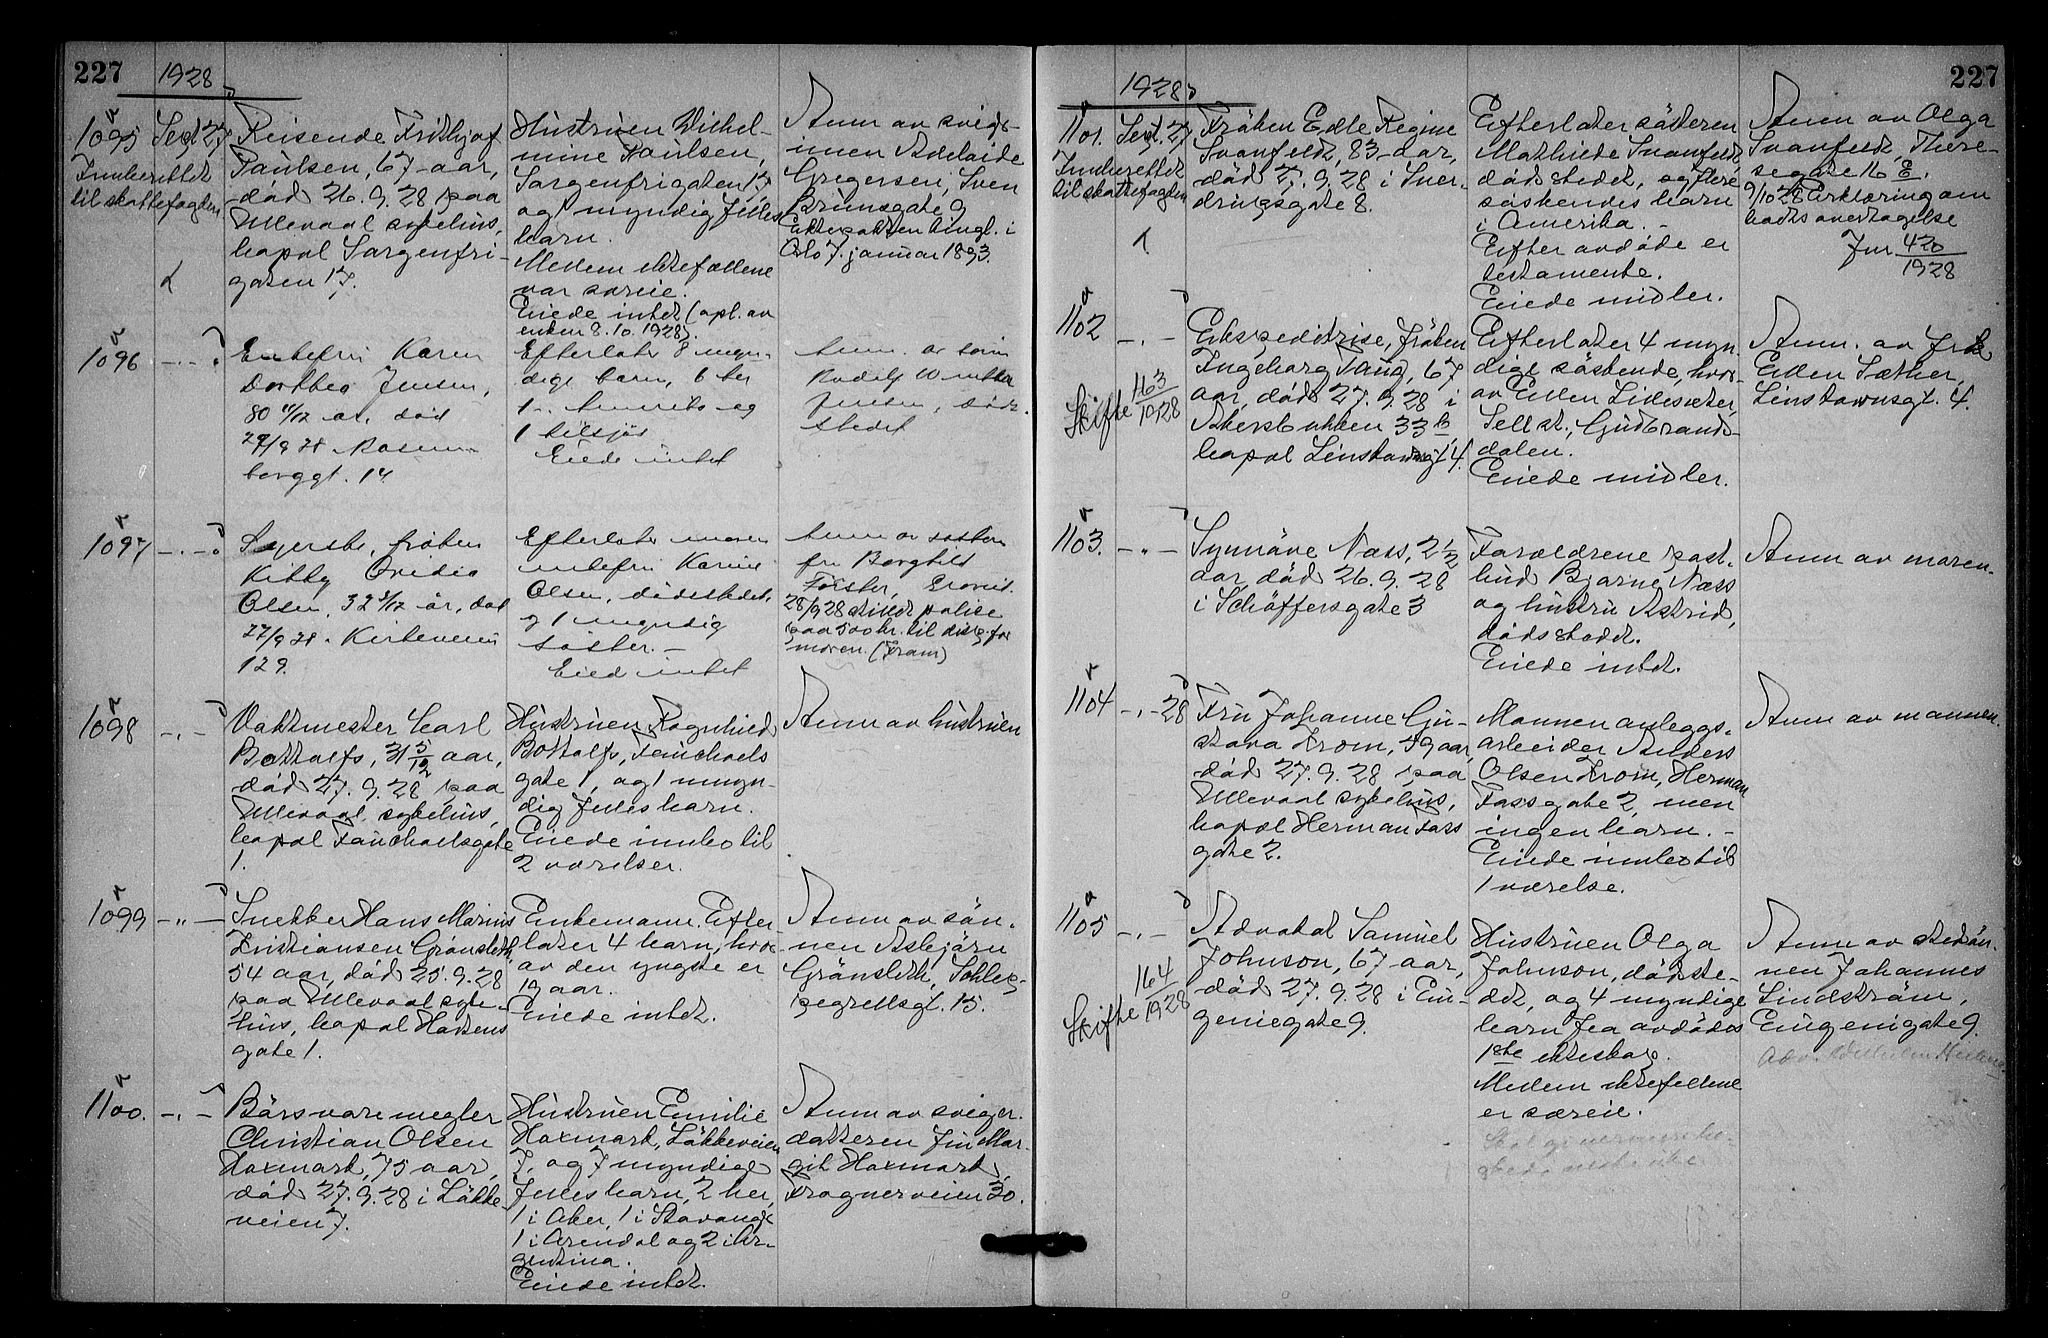 227
1928
1095
Sept 27
Innberettet
til skattefogden
Reisende Fridthjof
Paulsen, 67 aar,
död 26.9.28 paa
Ullevaal sykehus,
bopæl Sorgenfri-
gaten 17.
Hustruen Wilhel-
mine Paulsen,
Sorgenfrigaten 17,
og 1 myndig felles
barn.
Mellem ektefællene
var særeie.
Eiede intet (opl. av
enken 8.10.1928).
Anm av sviger-
Adelaide
Gregersen, Sven
Brunsgate 9
Ektepakten tingl. i
Oslo 7. januar 1893.
1096
Enkefru Karen
Dorthea Jensen,
80 11/12 år, död
9/28 Rosen-
borggt. 14
Efterlater 8 myn-
dige barn, 6 her
1 Amerika og
1 tilsjös
Eiede intet
Anm. av sönn
Rudolf
Jensen, döds-
stedet
1097
Syerske, fröken
Kitty Ovidia
Olsen, 32 år, död
27/9 28. Kirkeveien
129.
Efterlater moren
enkefru Karine
Olsen, dödsstedet,
og 1 myndig
söster. —
Eied intet
Anm av söstren
fru Borghild
Forster,
28/9 28 utlevert police
paa 500 kr. til disp. for
moren. (Fram)
1098
Vaktmester Carl
Bottolfs, 31 5/12 aar,
död 27.9.28 paa
Ullevaal sykehus,
bopæl Fauchaldsgate
1.
Hustruen Ragnhild
Bottolfs, Fauchalds
gate 1, og 1 myn-
dig felles barn.
Eiede innbo til
2 værelser.
Anm av hustruen
1099
Snekker Hans Marius
Kristiansen Grönsleth,
54 aar, död 25.9.28
paa Ullevaal syke-
hus, bopæl Holsens
gate 1.
Enkemann. Efter-
later 4 barn, hvor-
av den yngste er
19 aar.
Eiede intet.
Anm av sön-
nen Asbjörn
Grönsleth, Schles-
pegrellsgt. 15.
1100.
Börsvaremegler
Christian Olsen
Haxmark, 75 aar,
död 27.9.28 i Lökke-
veien 7.
Hustruen Emilie
Haxmark, Lökkeveien
7, og 7 myndige
felles barn, 2 her,
1 i Aker, 1 i Stavanger
1 i Arendal og 2 i Ar-
gentina.
Eiede intet.
Anm av sviger-
datteren fru Mar-
git Haxmark,
Frognerveien 30.
227
1928
1101.
Sept. 27
Innberettet
til skattefogden
Fröken Edle Regine
Svanfeldt, 83 aar,
död 27.9.28 i Sver-
drupsgate 8.
Efterlater sösteren
Mathilde Svanfeldt,
dödsstedet, og flere
söskendes barn
i Amerika. -
Efter avdöde er
testamente.
Eiede midler.
Anm av Olga
Svanfeldt, There-
segate 16 E.
9/10 28 Erklæring om
bodts overtagelse
Jnr 420/1928
1102
Skifte 163/1928
Ekspeditrise, fröken
Ingeborg Vaug, 67
aar, död 27.9.28 i
Akersbakken 33 b,
bopæl Linstowsgt 4.
Efterlater 4 myn-
dige söskende, hvor-
av Ellen Lillesæter,
Sell st., Gudbrands-
dalen.
Eiede midler.
Anm. av frk
Ellen Sæther,
Linstowsgt. 4.
1103.
Synnöve Næss, 2 1/2
aar, död 26.9.28
i Schäffersgate 3
Forældrene post-
bud Bjarne Næss
og hustru Astrid,
dödsstedet.
Eiede intet.
Anm av moren.
1104
28
Fru Johanne Gu-
stava Krom, 59 aar,
död 27.9.28 paa
Ullevaal sykehus,
bopæl Herman Foss
gate 2.
Mannen anleggs-
arbeider Anders
Olsen Krom, Herman
Fossgate 2, men
ingen barn. -
Eiede innbo til
1 værelse.
Anm av mannen.
1105
Skifte 164/1928
Advokat Samuel
Johnson, 67 aar,
död 27.9.28 i Eu-
geniegate 9.
Hustruen Olga
Johnson, dödsste-
det, og 4 myndige
barn fra avdödes
1ste ekteskap.
Mellem ektefellene
er særeie.
Anm av stedsön-
nen Johannes
Lindström,
Eugenigate 9.